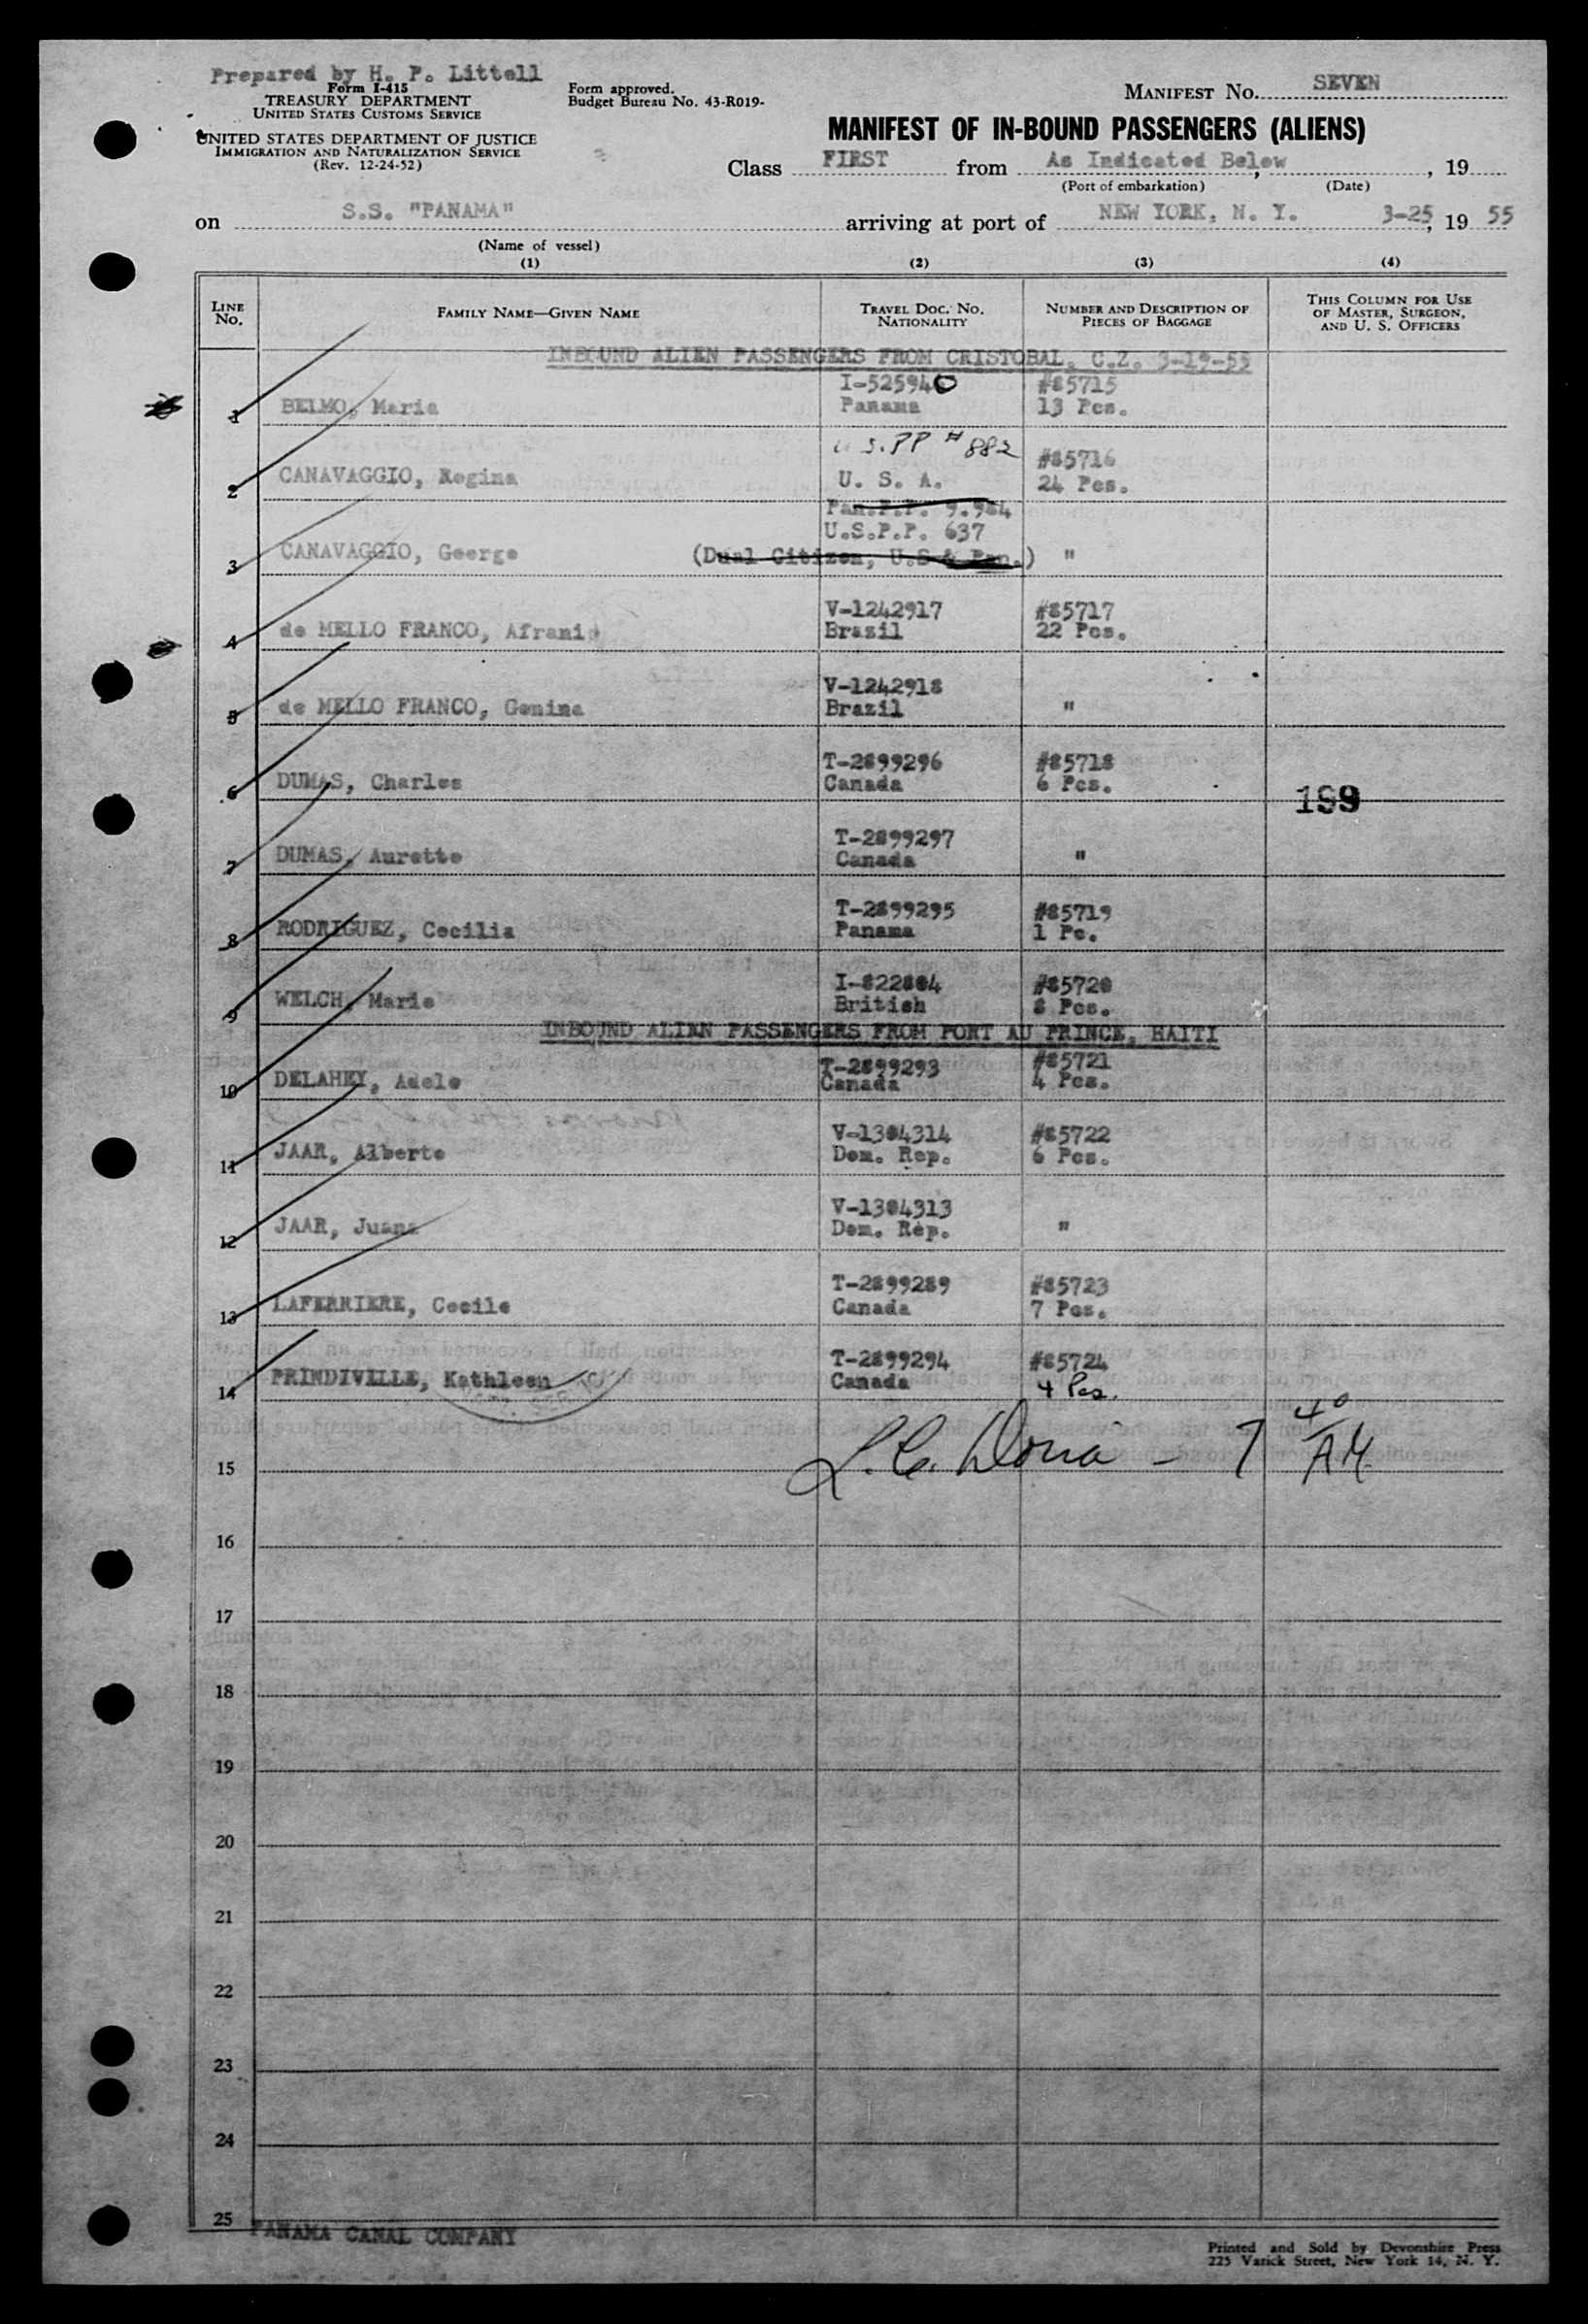 Prepared by H. P. Littell
Form I-415
TREASURY DEPARTMENT
UNITED STATES CUSTOMS SERVICE
UNITED STATES DEPARTMENT OF JUSTICE
IMMIGRATION AND NATURALIZATION SERVICE
(Rev. 12-24-52)
Form approved.
Budget Bureau No. 43-R019-
MANIFEST NO. SEVEN
MANIFEST OF IN-BOUND PASSENGERS (ALIENS)
Class FIRST from As Indicated Below, , 19
(Port of embarkation) (Date)
on S.S. "PANAMA" arriving at port of NEW YORK, N. Y. 3-25, 19 55
(Name of vessel)
(1) (2) (3) (4)
LINE NO. FAMILY NAME—GIVEN NAME TRAVEL DOC. NO. NATIONALITY NUMBER AND DESCRIPTION OF PIECES OF BAGGAGE THIS COLUMN FOR USE OF MASTER, SURGEON, AND U. S. OFFICERS
INBOUND ALIEN PASSENGERS FROM CRISTOBAL, C.Z. 3-19-55
I-525940 #85715
1 BELMO, Maria Panama 13 Pcs.
U.S.PP # 882 #85716
2 CANAVAGGIO, Regina U. S. A. 24 Pcs.
Pan.P.P. 9.984
U.S.P.P. 637
3 CANAVAGGIO, George (Dual Citizen, U.S & Pan.) "
V-1242917 #85717
4 de MELLO FRANCO, Afranio Brazil 22 Pcs.
V-1242918
5 de MELLO FRANCO, Genina Brazil "
T-2899296 #85718
6 DUMAS, Charles Canada 6 Pcs.
199
T-2899297
7 DUMAS, Aurette Canada "
T-2899295 #85719
8 RODRIGUEZ, Cecilia Panama 1 Pc.
I-822804 #85720
9 WELCH, Marie British 8 Pcs.
INBOUND ALIEN PASSENGERS FROM PORT AU PRINCE, HAITI
T-2899293 #85721
10 DELAHEY, Adele Canada 4 Pcs.
V-1304314 #85722
11 JAAR, Alberto Dom. Rep. 6 Pcs.
V-1304313
12 JAAR, Juana Dom. Rep. "
T-2899289 #85723
13 LAFERRIERE, Cecile Canada 7 Pcs.
T-2899294 #85724
14 PRINDIVILLE, Kathleen Canada 4 Pcs.
15 L. C. Doria - 7 40/AM
16
17
18
19
20
21
22
23
24
25
PANAMA CANAL COMPANY
Printed and Sold by Devonshire Press
225 Varick Street, New York 14, N. Y.